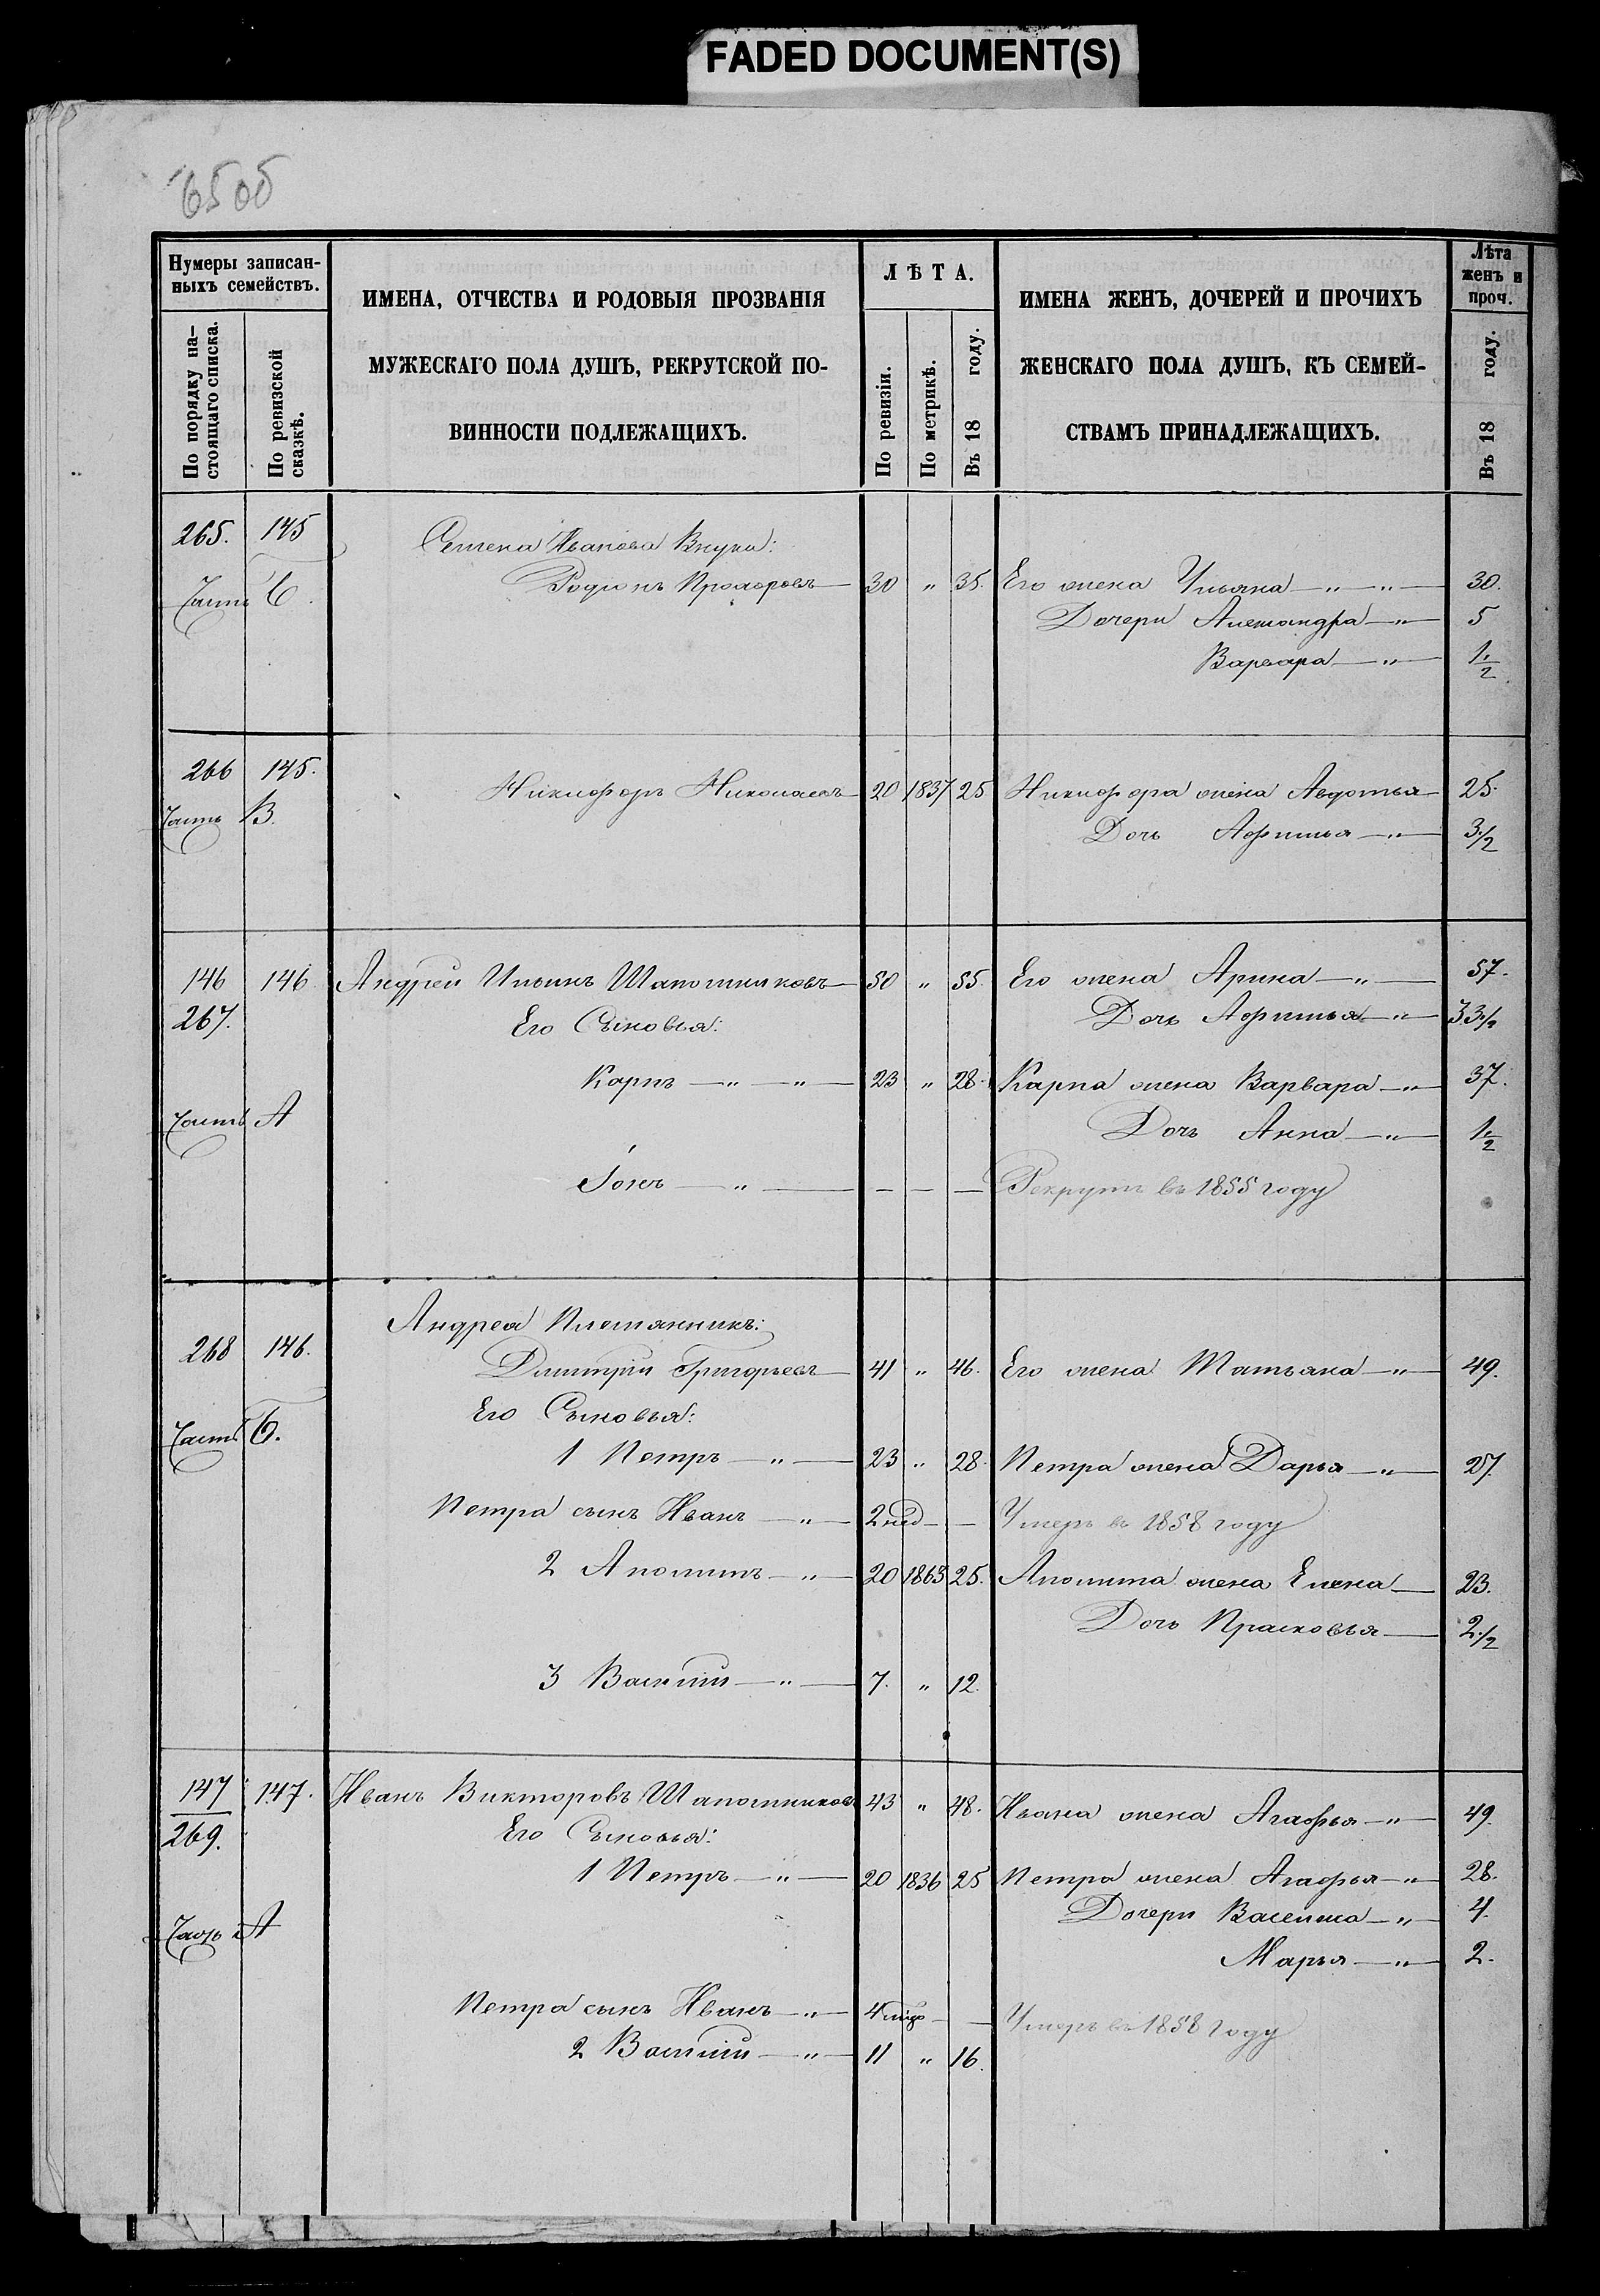 FADED DOCUMENT(S)
Нумеры записан-
ныхъ семействъ.
По порядку на-
стоящаго списка.
По ревизской
сказкѣ.
ИМЕНА, ОТЧЕСТВА И РОДОВЫЯ ПРОЗВАНІЯ
МУЖЕСКАГО ПОЛА ДУШЪ, РЕКРУТСКОЙ ПО-
ВИННОСТИ ПОДЛЕЖАЩИХЪ.
ЛѢТА.
По ревизіи.
По метрикѣ.
Въ 18 году.
ИМЕНА ЖЕНЪ, ДОЧЕРЕЙ И ПРОЧИХЪ
ЖЕНСКАГО ПОЛА ДУШЪ, КЪ СЕМЕЙ-
СТВАМЪ ПРИНАДЛЕЖАЩИХЪ.
Лѣта
женъ и
проч.
Въ 18 году.
265. 145 Семена Иванова Внуки:
Родионъ Прохоровъ 30 " 35. Его жена Ульяна " " 30.
Часть Дочери Александра " 5
Варвара " 1 1/2
266 145. Никифоръ Николаевъ 20 1837 25 Никифора жена Авдотья 25.
Часть В. Дочь Афимья " 3 1/2
146 146 Андрей Ильинъ Шапошниковъ 50 " 55. Его жена Арина " 57.
267. Его Сыновья: Дочь Афимья " 33 1/2
Карпъ " " 23 " 28. Карпа жена Варвара " 37.
Часть А Дочь Анна " 1 1/2
Іонъ " — — — Рекрутъ въ 1855 году
Андрея Племянникъ:
268 146. Дмитрій Григорьевъ 41 " 46. Его жена Татьяна " 49.
Часть Б. Его Сыновья:
1 Петръ " 23 " 28. Петра жена Дарья " 27.
Петра сынъ Иванъ " 2 нед — — Умеръ въ 1858 году
2 Аполитъ " 20 1863 25. Аполита жена Елена 23.
Дочь Прасковья 2 1/2
3 Василій " 7. " 12.
147 147. Иванъ Викторовъ Шапошниковъ 43 " 48. Ивана жена Агафья " 49.
269. Его Сыновья:
1 Петръ " 20 1836 25 Петра жена Агафья " 28.
Часть А Дочери Василиса " 4.
Марья " 2.
Петра сынъ Иванъ " 4 — — Умеръ въ 1858 году
2 Василій " 11 " 16.